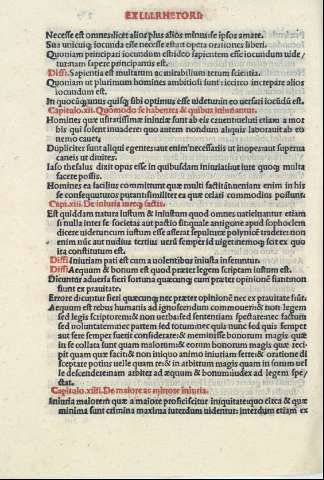 EX LI.I.RHETORI
Necesse est omnes licet alios plus alios minus se ipsos amare.
Sua unicuiq; iocunda esse necesse est ut opera orationes liberi.
Quoniam principari iocundum est ideo sapientem esse iocundum uide/
turnam sapere principantis est.
Diffi. Sapientia est multarum ac mirabilium rerum scientia.
Quoniam ut plurimum homines ambitiosi sunt: iccirco increpare alios
iocundum est.
In quocũq; unus quisq; sibi optimus esse uidetur in eo uersari iocũdũ est.
Capitulo.xii. Quõmodo se habentes & quibus iniuriantur.
Homines quæ usitatissimæ iniuriæ sunt ab eis
bis qui solent inuadere: quo autem nondum aliquis laborauit ab eo
nemo cauet.
Dupliciter sunt aliqui egentes aut enim necessariis ut inopes aut superua
caneis ut diuites.
Iaso thesalus dixit opus esse in quibusdam iniuriari ut iure quoq; multa
facere possis.
Homines ea facilius committunt quæ multi factitãt: ueniam enim in his
se consequuturos putant: similiter ea quæ celari commodius possunt.
Capi.xiii. De iniuria & recte factis.
Est quiddam natura iustum & iniustum quod omnes uaticinantur etiam
si nulla inter se societas aut pactio sit: quale antigone apud sophoclem
dicere uidetur: non iustum esse asserat sepulturæ polynicẽ tradere: non
enim nũc aut nudius tertius uerũ semper id uiget: nemoq; scit ex quo
ita constitutum est.
Diffi. Iniuriari pati est cum a uolentibus iniusta inferuntur.
Diffi. Aequum & bonum est quod præter legem scriptam iustum est.
Dicuntur aduersa fieri fortuna quæcunq; cum præter opinionẽ fiunt: non
sunt ex prauitate.
Errore dicuntur fieri quæcunq; nec præter opinionẽ nec ex prauitate fiũt.
Aequum est rebus humanis ad ignoscendum commoueri: & non legem
sed legis scriptorem: & non uerba sed sententiam spectare: nec factum
sed uoluntatem nec partem sed totum: nec quis nunc sed quis semper
aut sere semper fuerit considerare: & meminisse bonorum magis quæ
in se collata sunt quam malorum: & eorum bonorum magis quæ reci-
pit quam quæ facit: & non iniquo animo iniuriam ferre: & oratione di
sceptare potius uelle quam re: & in arbitrum magis quam in forum uel
le descendere: nam arbiter ad æquum & bonum: iudex ad legem spe/
ctat.
Capitulo.xiiii. De maiore ac minore iniuria.
Iniuria maiorem quæ a maiore proficiscitur iniquitate: quo circa & quæ
minima sunt crimina maxima iuterdum uidentur: interdum etiam ex